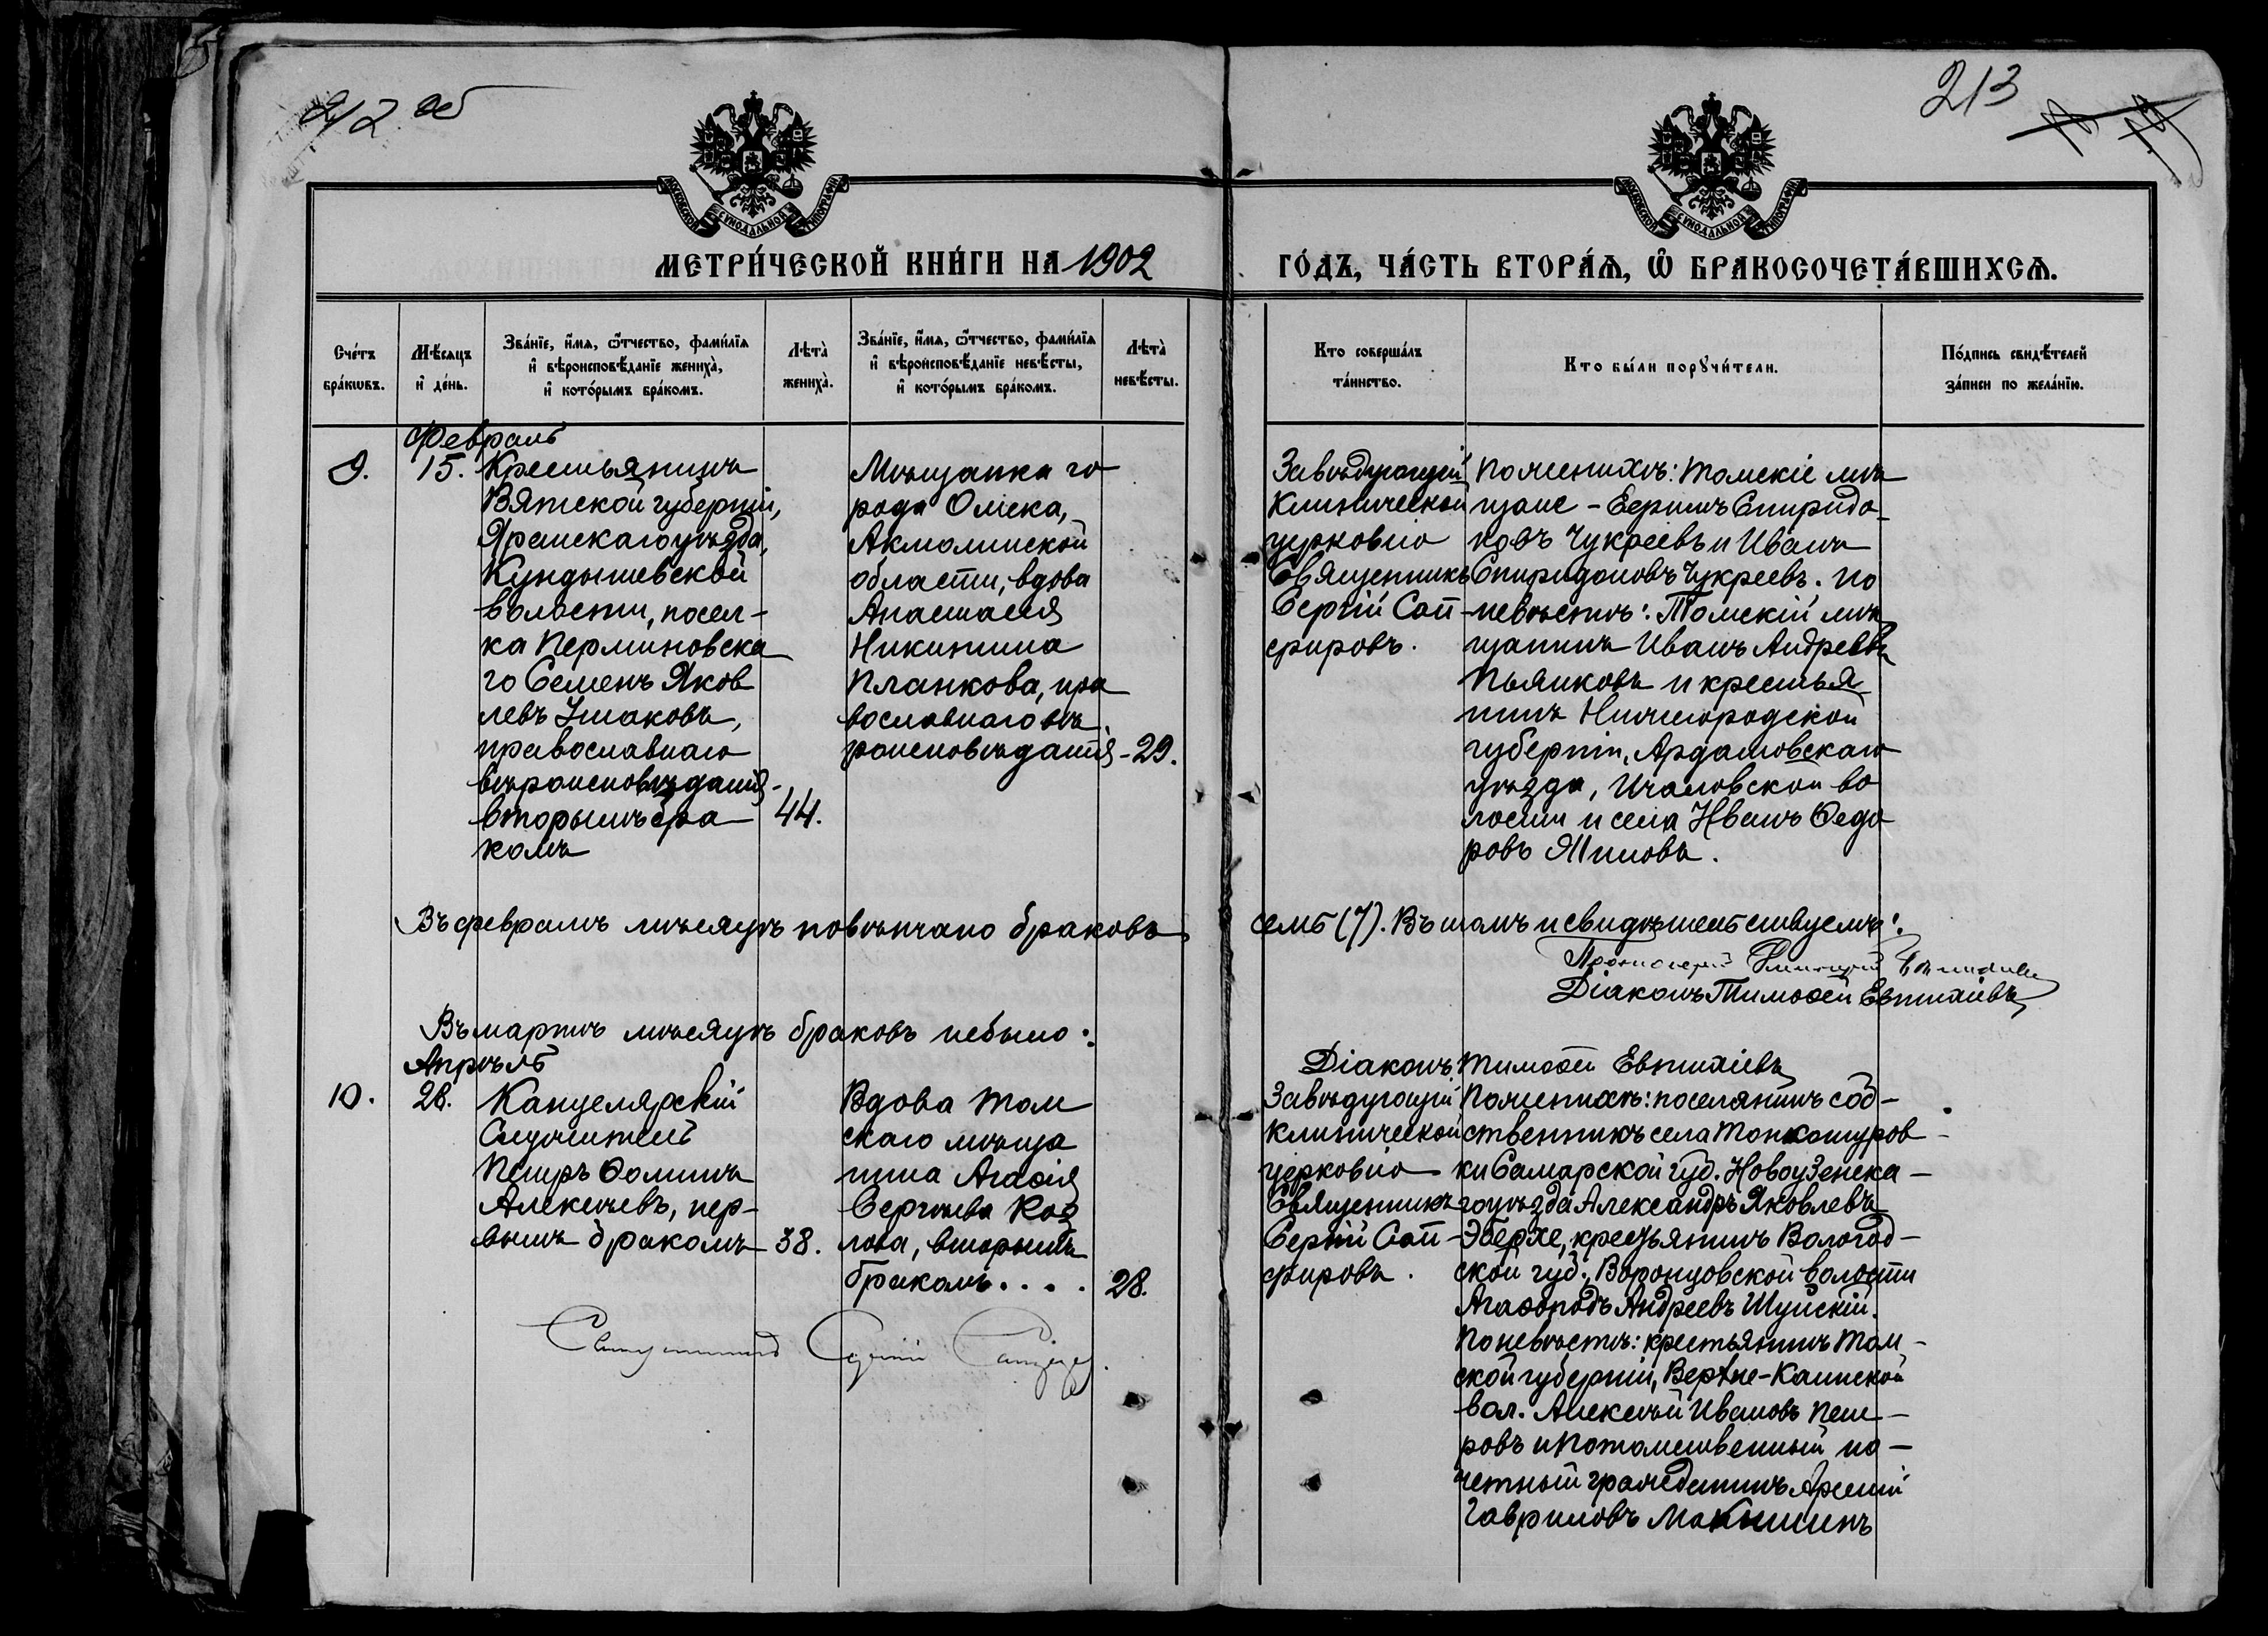 212 об
213
МОСКОВСКОЙ СѴНОДАЛЬНОЙ ТИПОГРАФІИ
МОСКОВСКОЙ СѴНОДАЛЬНОЙ ТИПОГРАФІИ
МЕТРИ́ЧЕСКОЙ КНИ́ГИ НА 1902
ГО́ДЪ, ЧА́СТЬ ВТОРА́Ѧ, Ѽ БРАКОСОЧЕТА́ВШИХСѦ.
Сче́тъ
бра́кѡвъ.
Мѣ́сяцъ
и҆ де́нь.
Зва́нїе, и҆́мѧ, ѻ҆́тчество, фами́лїѧ
и҆ вѣроисповѣ́данїе жениха̀,
и҆ кото́рымъ бра́комъ.
Лѣта̀
жениха̀.
Зва́нїе, и҆́мѧ, ѻ҆́тчество, фами́лїѧ
и҆ вѣроисповѣ́данїе невѣ́сты,
и҆ кото́рымъ бра́комъ.
Лѣта̀
невѣ́сты.
Кто соверша́лъ
та́инство.
Кто бы́ли порꙋчи́тели.
По́дпись свидѣ́телей
за́писи по жела́нїю.
Февраль
9.
15.
Крестьянинъ
Вятской губерніи,
Яранскаго уѣзда,
Кундышевской
волости, посел-
ка Перминовска
го Семенъ Яков
левъ Ушаковъ,
православнаго
вѣроисповѣданія-
вторымъ бра
комъ
44.
Мѣщанка го
рода Омска,
Акмолинской
области, вдова
Анастасія
Никитина
Планкова, пра
вославнаго вѣ
роисповѣданія-
29.
Завѣдующій
Клинической
церковію
Священникъ
Сергій Сап-
фировъ.
По женихѣ: Томскіе мѣ
щане - Еримъ Спиридо-
новъ Чукреевъ и Иванъ
Спиридоновъ Чукреевъ. По
невѣстѣ: Томскій мѣ
щанинъ Иванъ Андреевъ
Пьянковъ и крестья
нинъ Нижегородской
губерніи, Ардатовскаго
уѣзда, Ичаловской во
лости и села Иванъ Ѳедо
ровъ Япиовъ.
Въ февралѣ мѣсяцѣ повѣнчано браковъ
семь (7). Въ томъ и свидѣтельствуемъ:
Протоіерей
Діаконъ Тимоѳей Евтихіевъ
Въ мартѣ мѣсяцѣ браковъ небыло:
Діаконъ Тимоѳей Евтихіевъ
Апрѣль
10.
28.
Канцелярскій
Служитель
Петръ Ѳоминъ
Алексѣевъ, пер-
вымъ бракомъ
38.
Вдова Том
скаго мѣща
нина Агаѳія
Сергѣева Коз
лова, вторымъ
бракомъ....
28.
Завѣдующій
Клинической
церковію
Священникъ
Сергій Сап-
фировъ.
По женихѣ: поселянинъ соб-
ственникъ села Тонкошуров-
ки Самарской губ. Новоузенска-
го уѣзда Александръ Яковлевъ
Эберхе, крестьянинъ Вологод-
ской губ., Воронцовской волости
Агаѳоподъ Андреевъ Шуйскій.
По невѣстѣ: крестьянинъ Том-
ской губерніи, Верхне-Каинской
вол. Алексѣй Ивановъ Пет-
ровъ и Потомственный по-
четный гражданинъ Арсеній
Гавриловъ Мокышинъ
Священникъ Сергій Сапфиров.